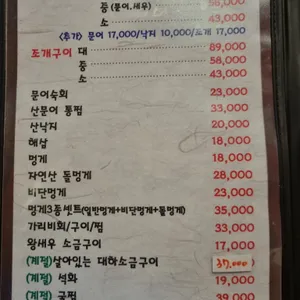 중 (문어.새우) 58,000
소 43,000
<추가> 문어 17,000/낙지 10,000/조개 17,000
조개구이 대 89,000
중 58,000
소 43,000
문어숙회 23,000
산문어 통찜 33,000
산낙지 20,000
해삼 18,000
멍게 18,000
자연산 돌멍게 28,000
비단멍게 23,000
멍게3종셋트(일반멍게+비단멍게+돌멍게) 35,000
가리비회/구이/찜 33,000
왕새우 소금구이 17,000
(계절)살아있는 대하소금구이 37,000
(계절) 석화 19,000
(계절) 굴찜 39,000